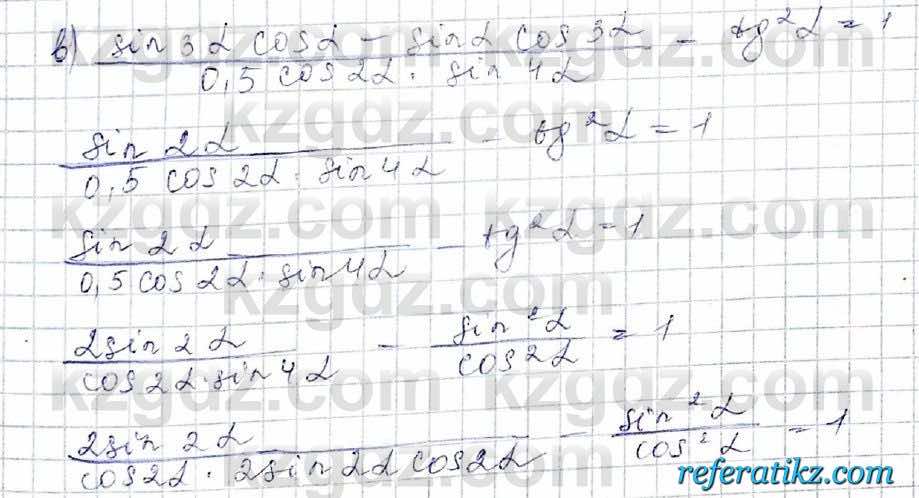 в) sin 3α cosα – sinα cos 3α / 0,5 cos2α · sin 4α – tg²α = 1
sin 2α / 0,5 cos 2α · sin 4α – tg²α = 1
sin 2α / 0,5 cos 2α · sin 4α – tg²α = 1
2sin 2α / cos 2α · sin 4α – sin²α / cos2α = 1
2sin 2α / cos2α · 2sin 2α cos2α – sin²α / cos²α = 1
kzgdz.com kzgdz.com
kzgdz.com kzgdz.com
kzgdz.com kzgdz.com
kzgdz.com kzgdz.com
kzgdz.com kzgdz.com
referatikz.com